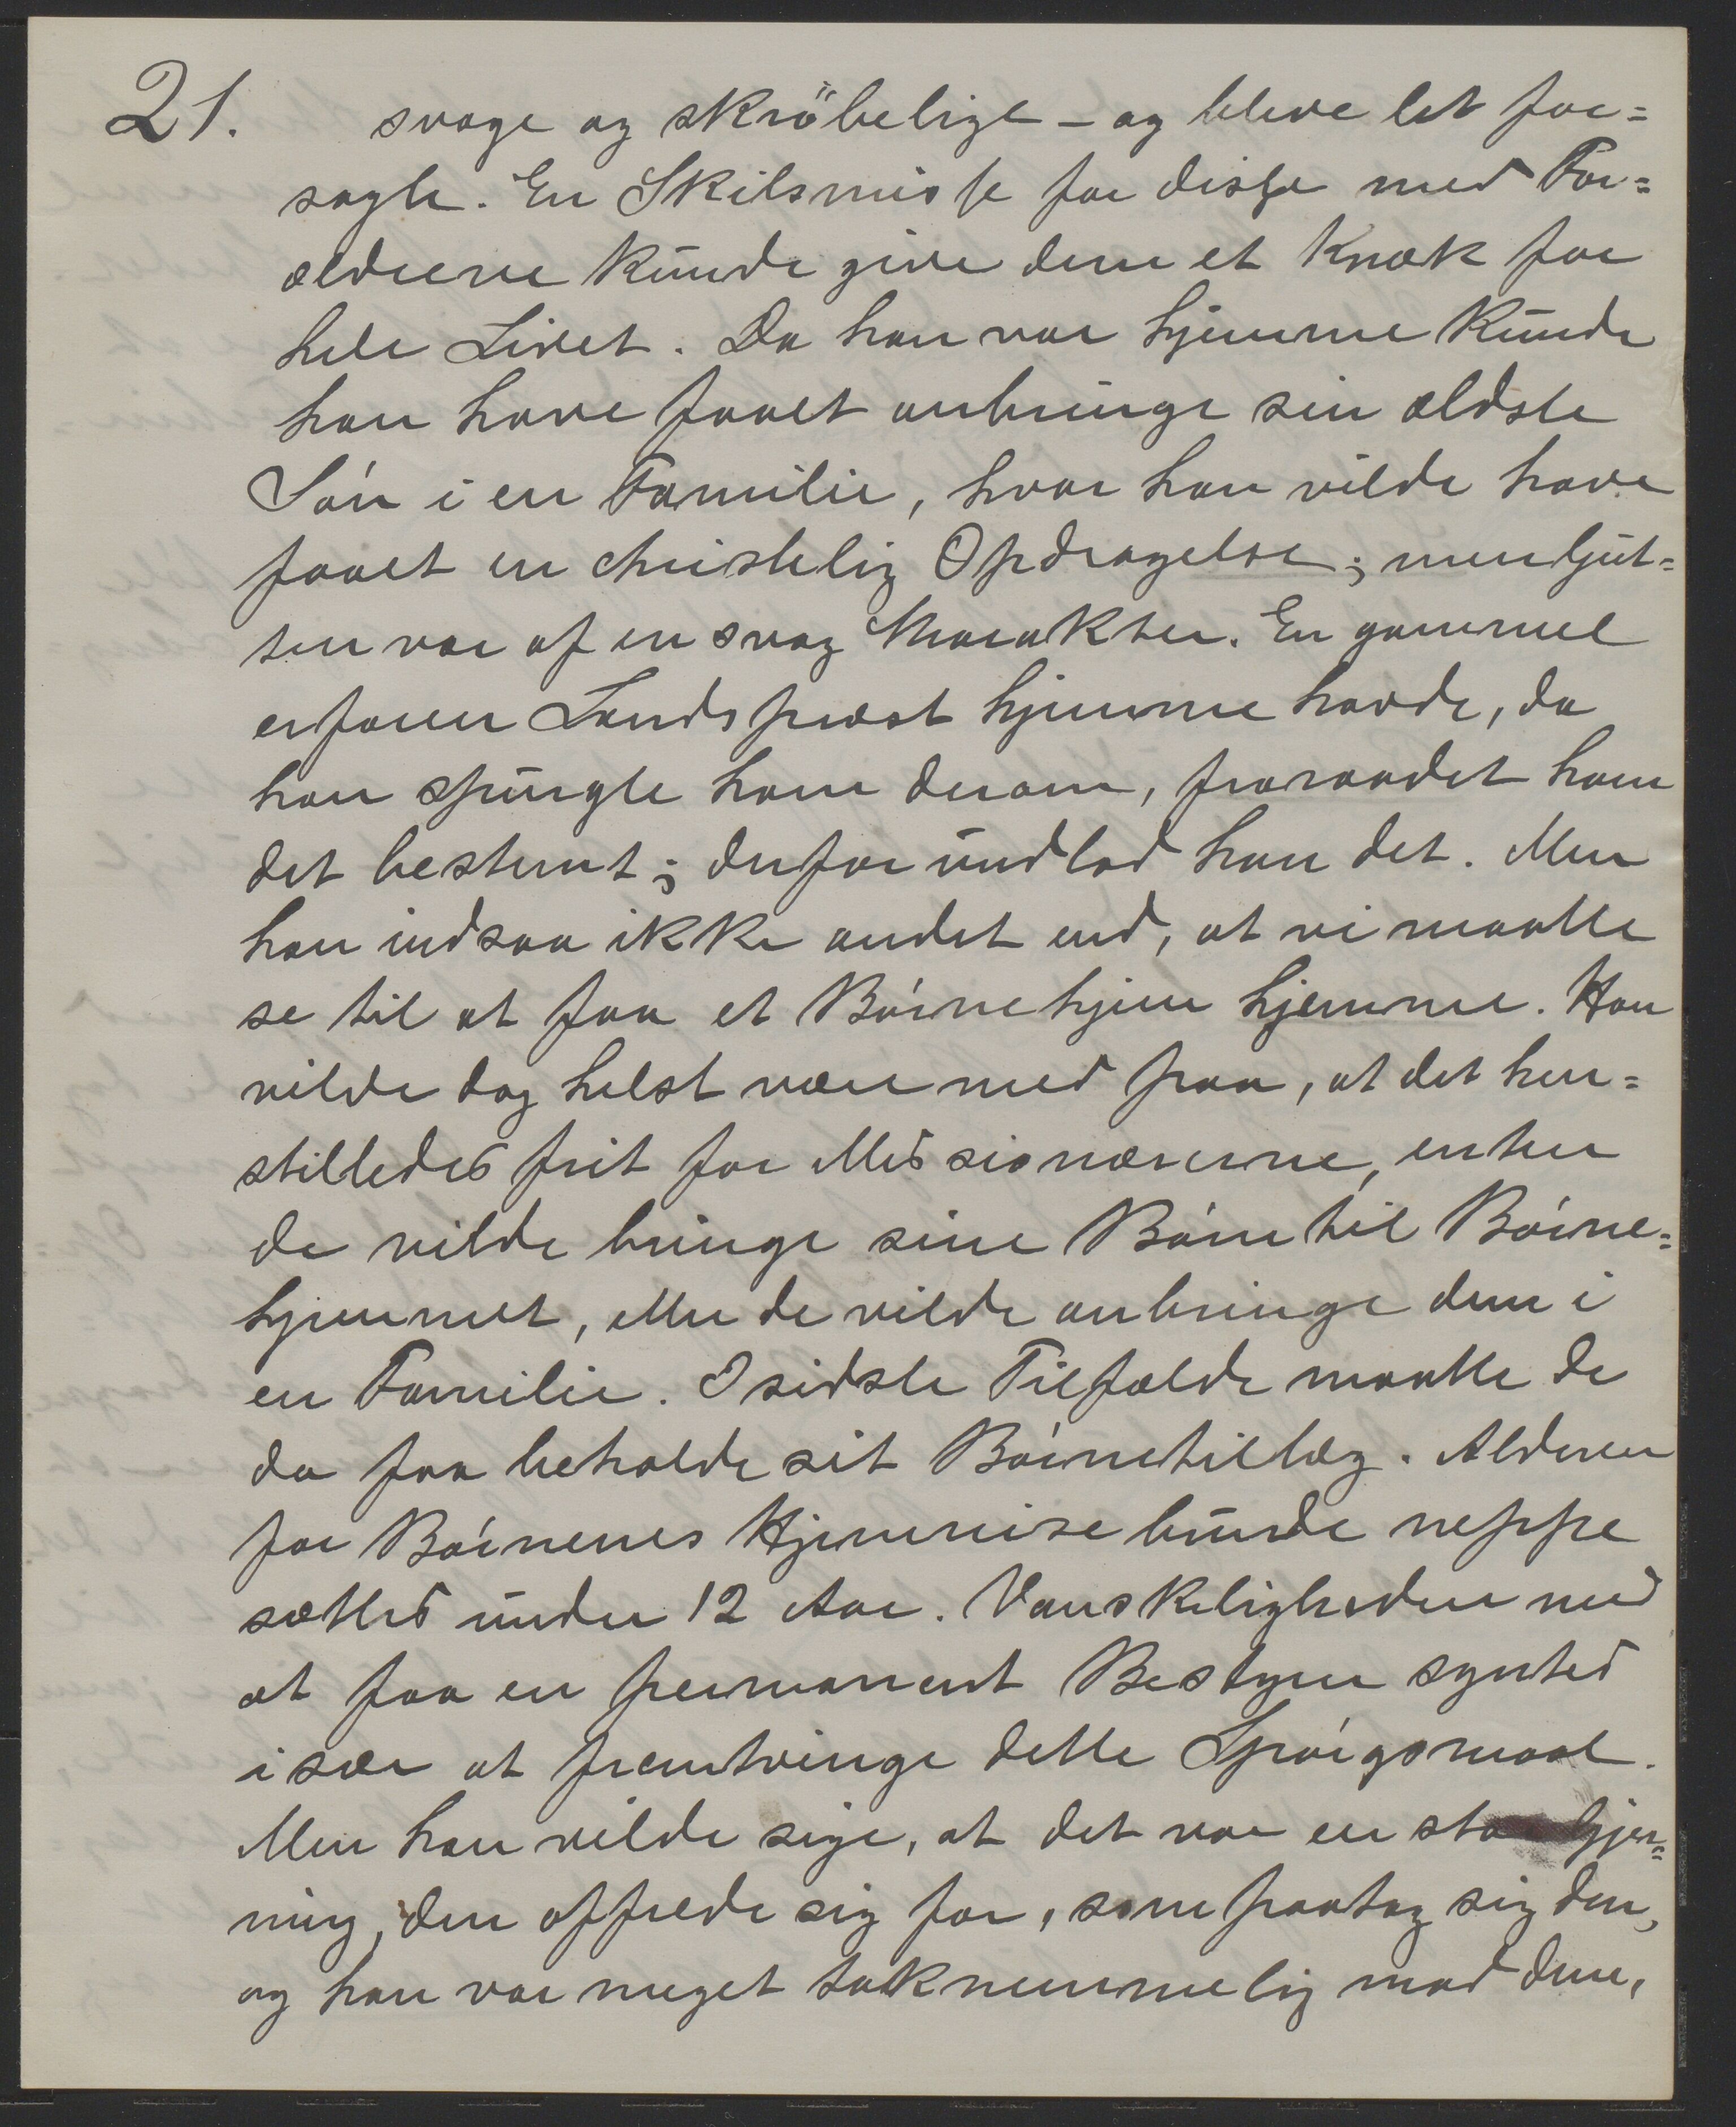 21. svage og skröbelige – og bleve let for=
sagte. En Skilsmisse for disse med For=
ældrene kunde give dem et Knæk for
hele Livet. Da han var hjemme kunde
han have faaet anbringe sin ældste
Són i en Familie, hvor han vilde have
faaet en christelig Opdragelse; men Gut=
ten var af en svag Charakter. En gammel
erfaren Landsprest hjemme havde, da
han spurgte ham derom, fraraadet ham
det bestemt; derfor undlod han det. Men
han indsaa ikke andet end, at vi maatte
se til at faa et Bórnehjem hjemme. Han
vilde dog helst være med paa, at det hen=
stilledes frit for Missionærerne, enten
de vilde bringe sine Bórn til Bórne=
hjemmet, eller de vilde anbringe dem i
en Familie. I sidste Tilfælde maatte de
da faa beholde sit Bórnetillæg. Alderen
for Bórnenes Hjemreise burde neppe
sættes under 12 Aar. Vanskeligheden med
at faa en permanent Bestyrer syntes
især at fremtvinge dette Spórgsmaal.
Men han vilde sige, at det var en stor Gjer=
ning, den offrede sig for, som paatog sig den,
og han var meget taknemmelig mod dem,